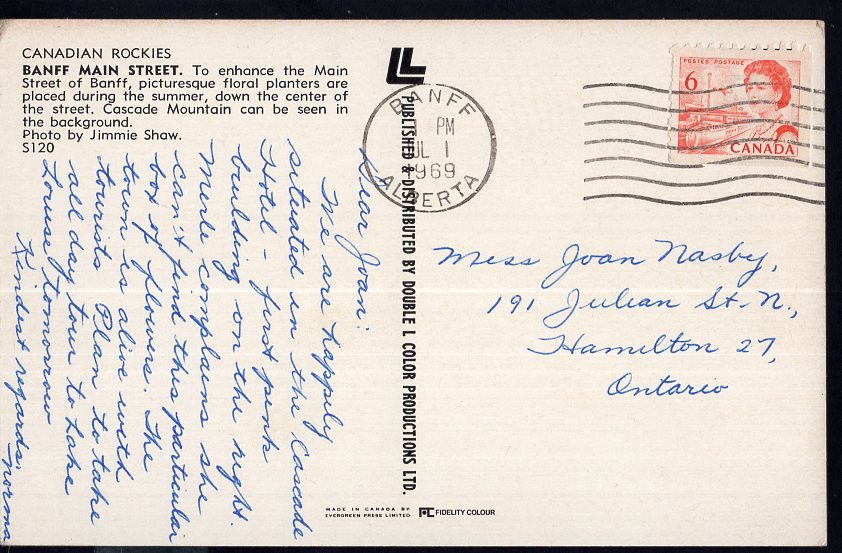 CANADIAN ROCKIES
BANFF MAIN STREET. To enhance the Main
Street of Banff, picturesque floral planters are
placed during the summer, down the center of
the street. Cascade Mountain can be seen in
the background.
Photo by Jimmie Shaw.
S120
Dear Joan:
We are happily
situated in the Cascade
Hotel - first pink
building on the right.
Merle complains she
can't find this particular
box of flowers. The
town is alive with
tourists Plan to take
all day tour to Lake
Louise tomorrow
Kindest regards,
Norma
LL
PUBLISHED & DISTRIBUTED BY DOUBLE L COLOR PRODUCTIONS LTD.
BANFF
PM
JUL 1
1969
ALBERTA
POSTES POSTAGE
6
CANADA
Miss Joan Nasby,
191 Julian St. N.,
Hamilton 27,
Ontario
MADE IN CANADA BY
EVERGREEN PRESS LIMITED
FC FIDELITY COLOUR